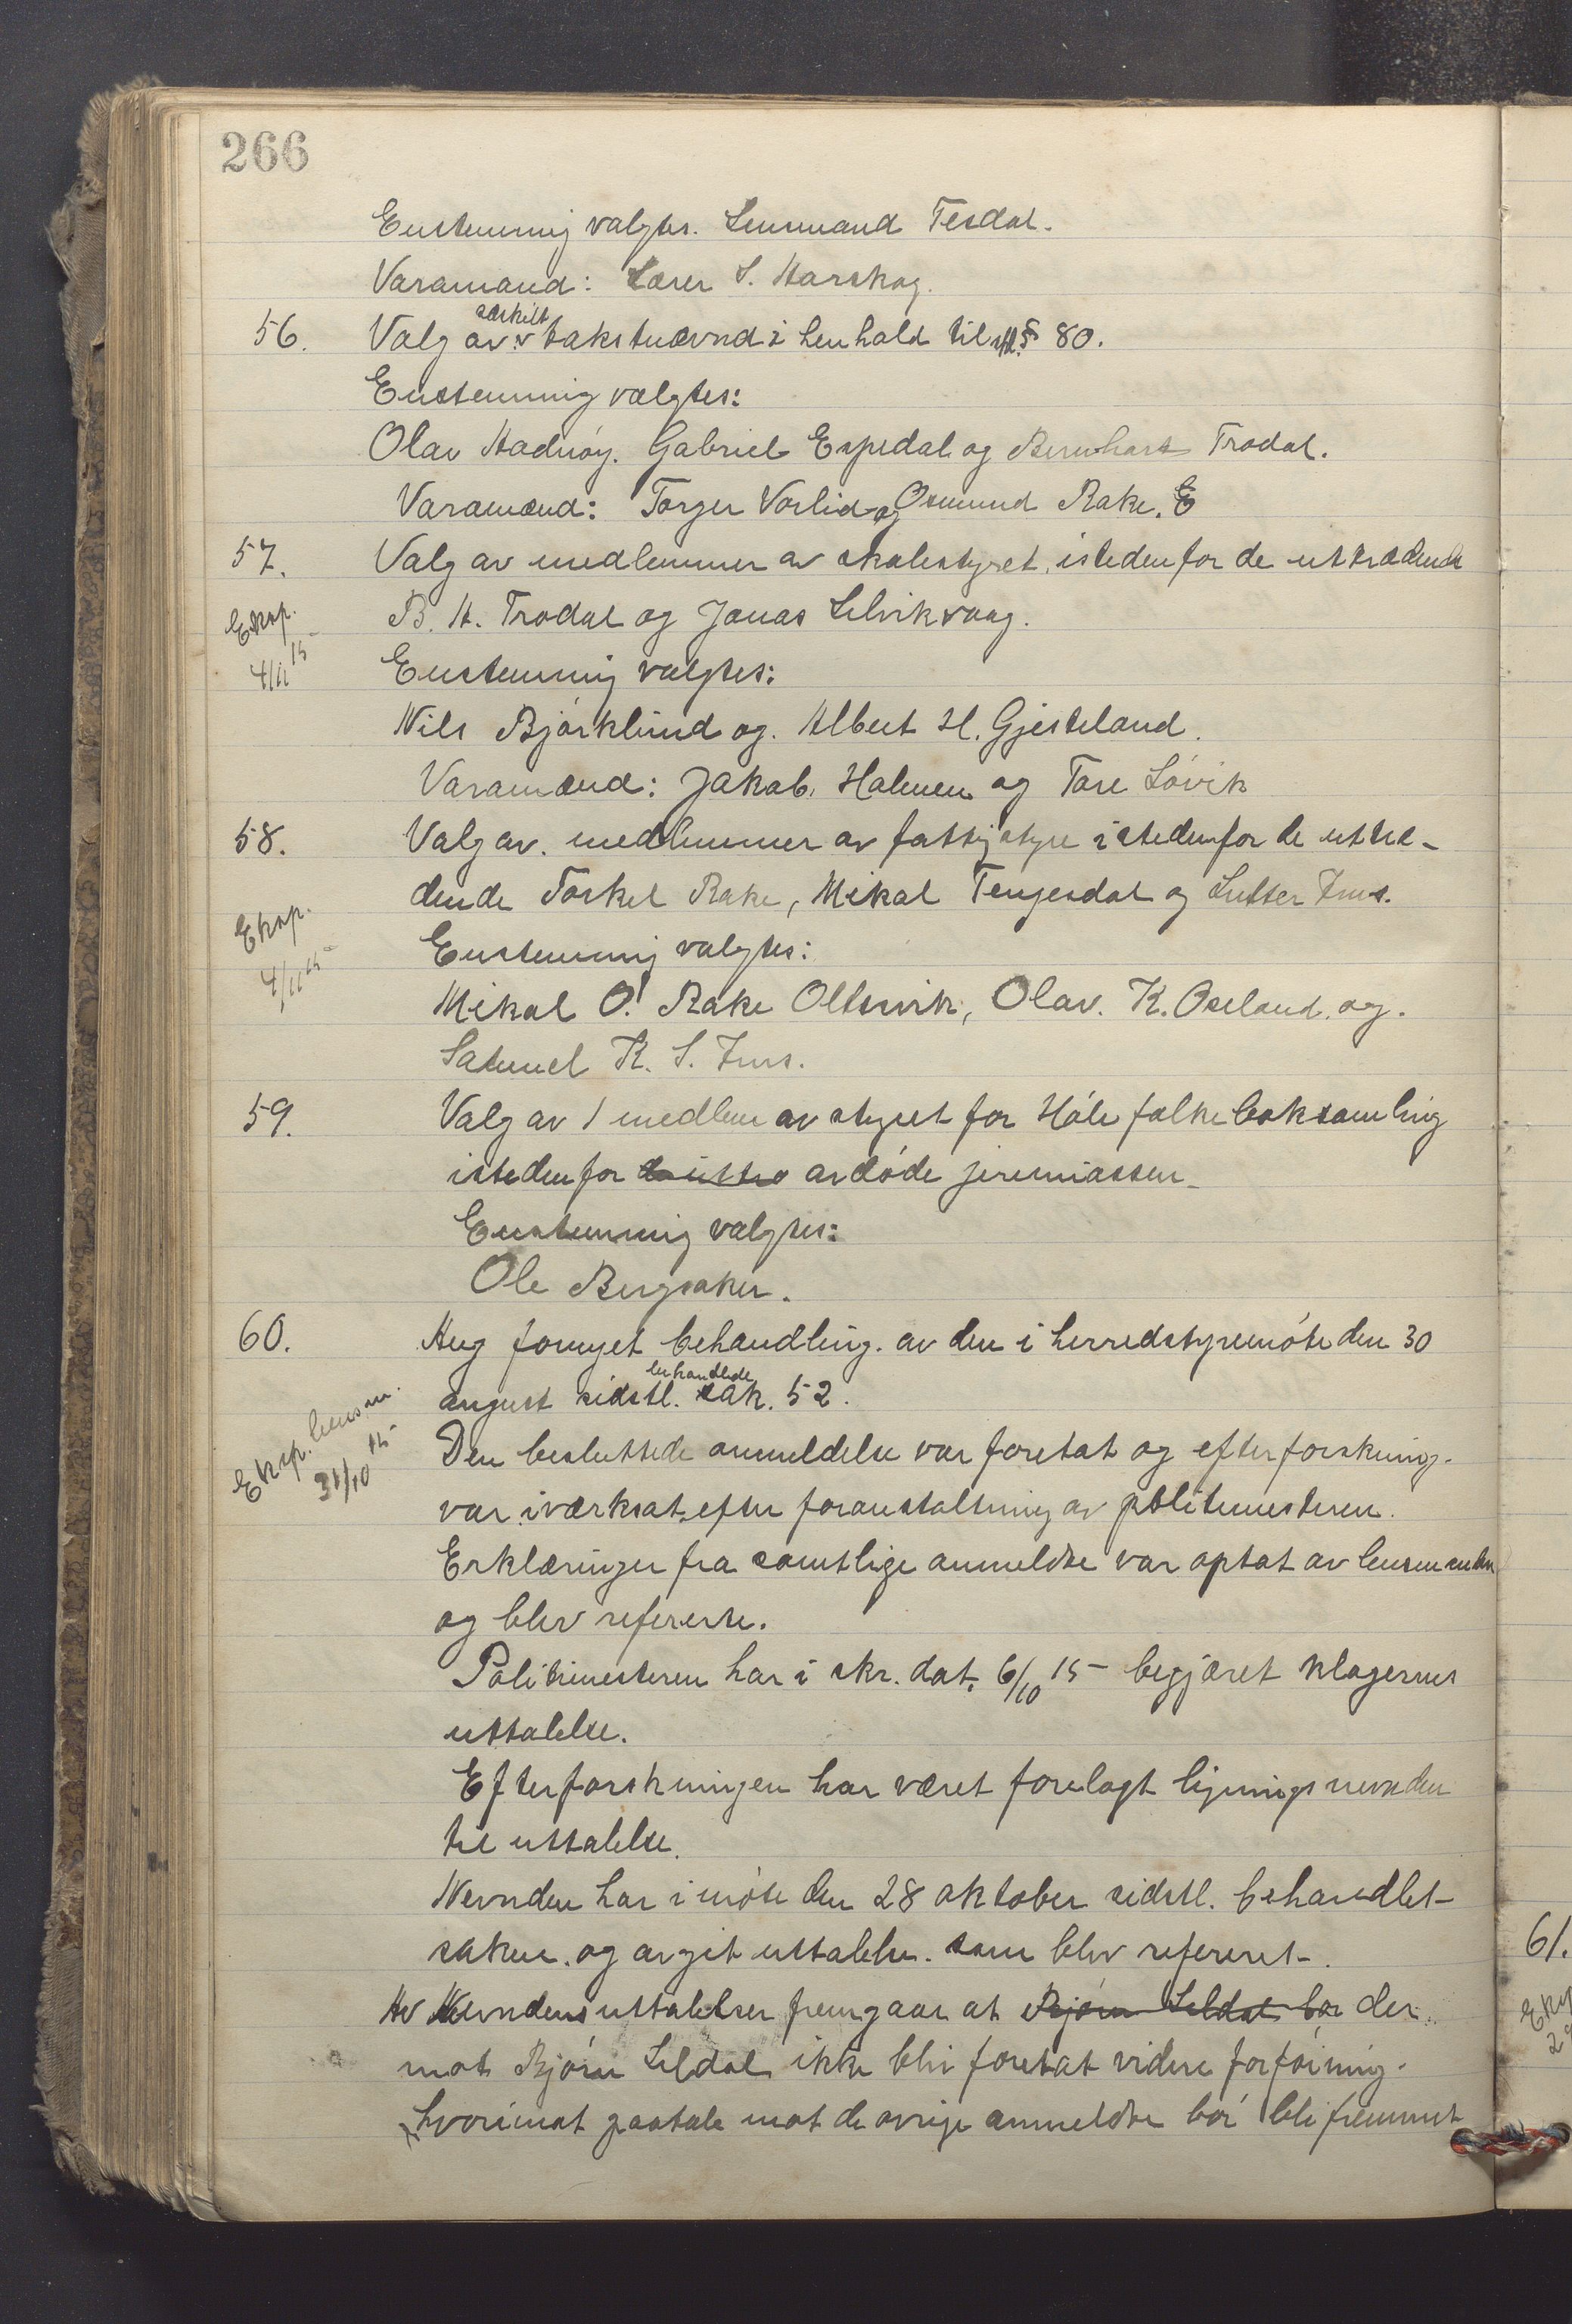 266
Enstemmig valgtes. Lensmand Tesdal.
Varamand: Lærer S. Aarskog.
56. Valg av særkilt takstnævnd i henhold til § 80.
Enstemmig valgtes:
Olav Aadnøy. Gabriel Espedal og Bernhart Trodal.
Varamænd: Torger Vorlid og Osmund Rake.
57. Valg av medlemmer av skolestyret, istedenfor de uttrædende
Eksp. B. A. Trodal og Jonas Selvikvaag.
4/11 15 Enstemmig valgtes:
Nils Bjørklund og. Albert H. Gjesteland.
Varamænd: Jakob. Holmen og Tore Løvik
58. Valg av. medlemmer av fattigstyre istedenfor de uttræ-
dende Torkel Rake, Mikal Tengesdal og Lutser Ims.
Eksp. Enstemmig valgtes:
4/11 15 Mikal O. Rake Oltesvik, Olav. K. Oseland. og.
Samuel K. S. Ims.
59. Valg av 1 medlem av styret for Høle folkeboksamling
istedenfor avdøde jeremiassen
Enstemmig valgtes:
Ole Bergsaker.
60. Ang fornyet behandling. av den i herredstyremøte den 30
august sidstl. behandlede sak. 52.
Eksp. lensm. 31/10 15 Den besluttede anmeldelse var foretat og efterforskning.
var iværksat efter foranstaltning av politimesteren.
Erklæringer fra samtlige anmeldte var optat av lensmanden
og blev refererte.
Politimesteren har i skr. dat. 6/10 15 begjæret klagernes
uttalelse.
Efterforskningen har været forelagt ligningsnevnden
til uttalelse.
Nevnden har i møte den 28 oktober sidstl. behandlet
saken. og avgit uttalelse. som blev referert.
Av Nevndens uttalelser fremgaar at Bjørn Seldal bør der
mot Bjørn Seldal ikke bliv foretat videre forføining.
hvorimot paatale mot de øvrige anmeldte bør bli fremmet
61.